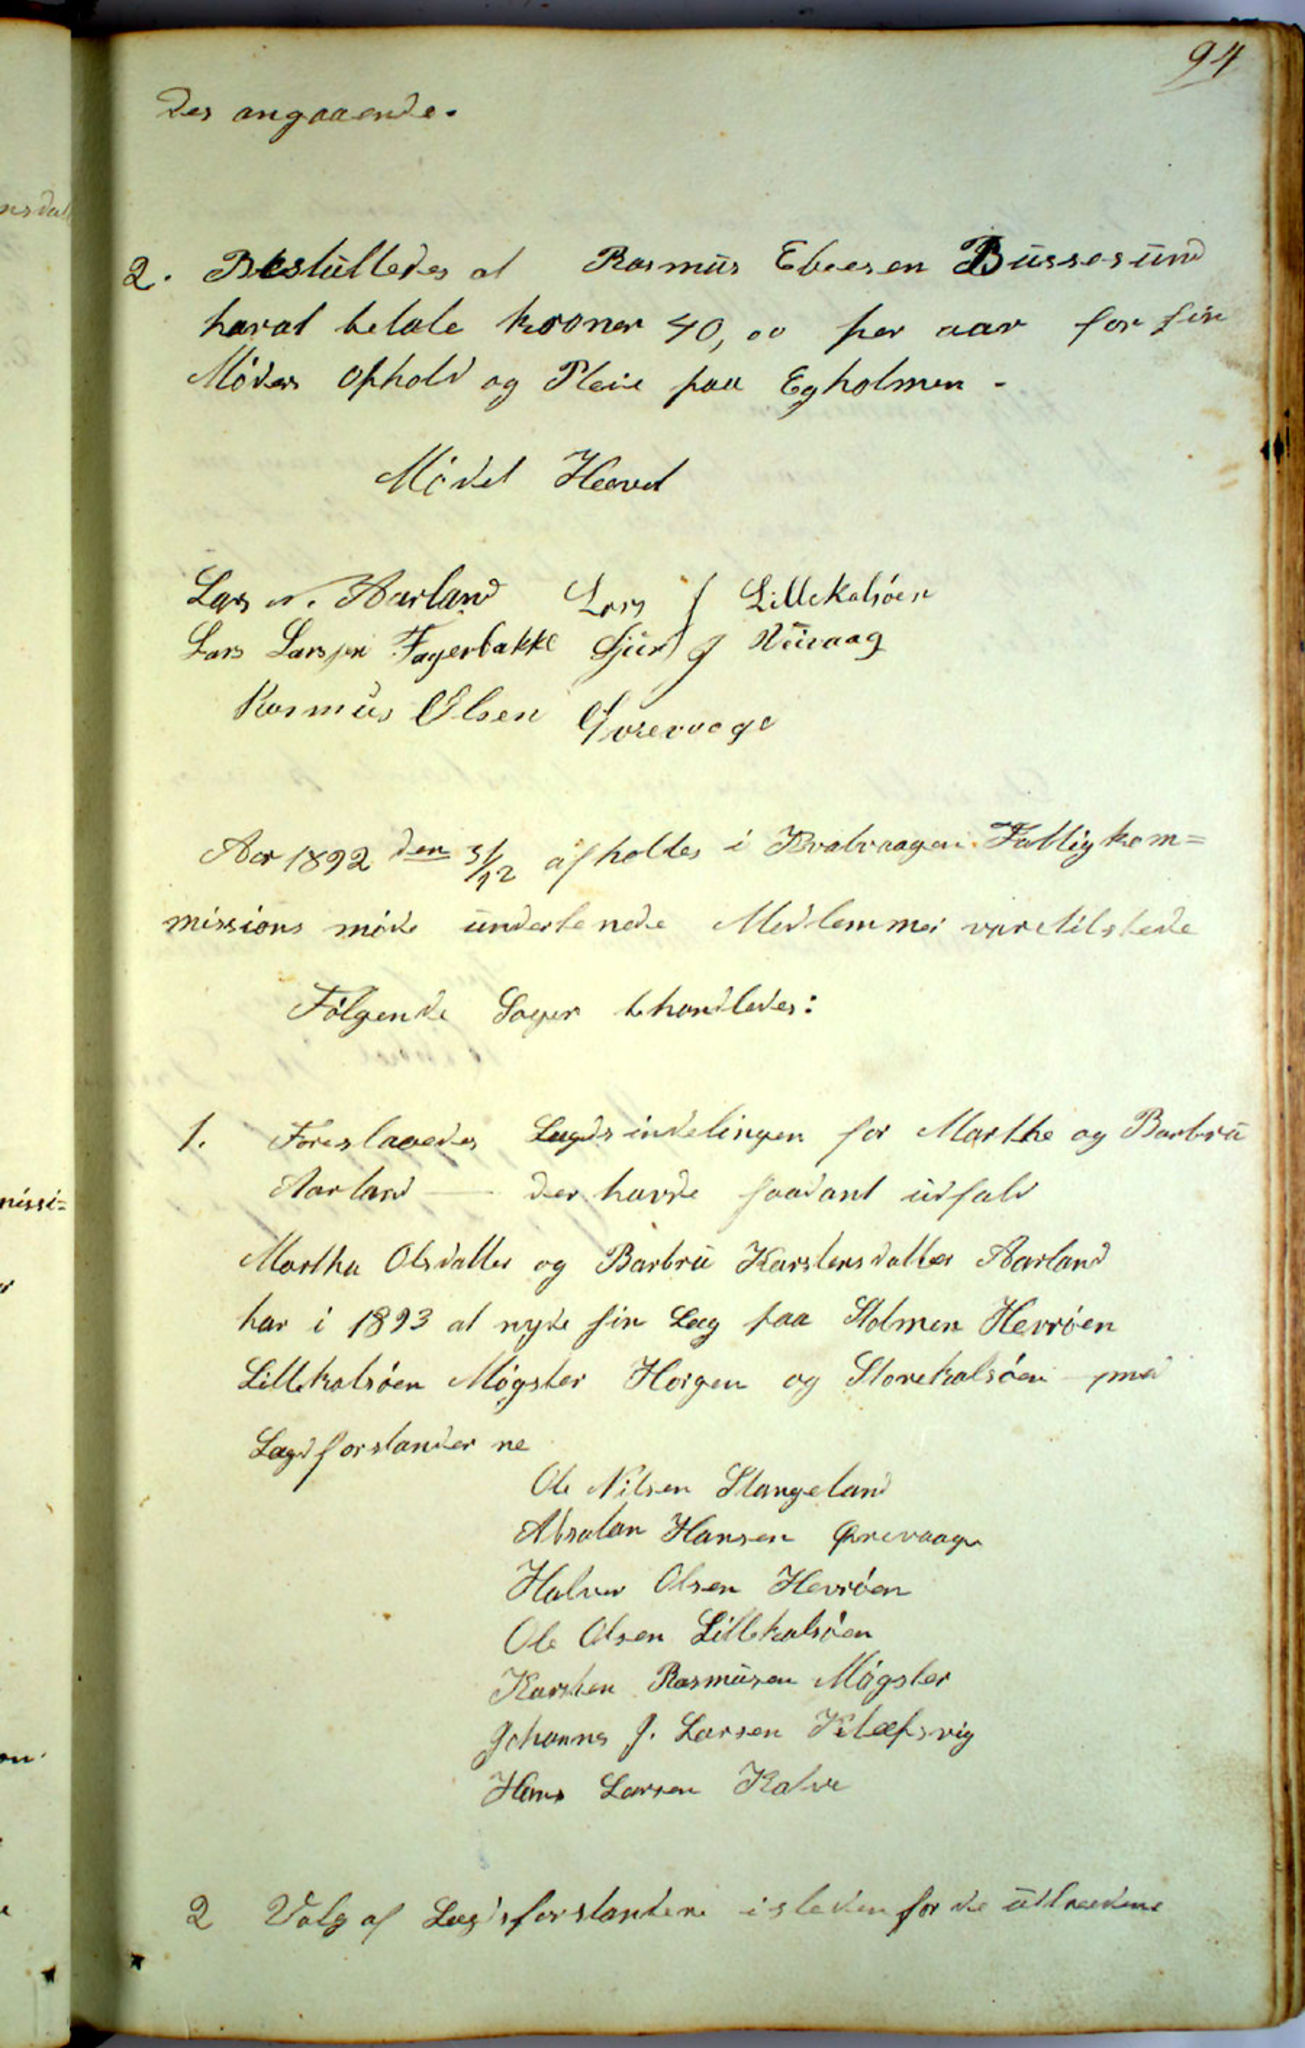 94
des angaaende.
2. Beslutledes at Rasmus Ebeesen Bussesund
har at betale kroner 40,00 per aar for sin
Moders Ophold og Pleie paa Egholmen -
Mödet Hævet
Lars N. Aarland Lars J Lillekalsöen
Lars Larssen Fagerbakke Sjur J Hüivaag
Rasmus Olsen Qvrevaage
Aar 1892 den 31/12 afholdes i Kvalvaagen Fattigkom=
missions möde undertenede Medlemmer vare tilstede
Fölgende Sager behandledes:
1. Foreslaaedes Lægdsindelingen for Marthe og Barbru
Aarland — der havde saadant udfald
Martha Olsdatter og Barbru Karstensdatter Aarland
har i 1893 at nyde sin Læg paa Stolmen Hevröen
Lillekalsöen Mögster Horgen og Storekalsöen med
Lægdforstanderne
Ole Nilsen Stangeland
Absalon Hansen Qvrevaage
Halvor Olsen Hevröen
Ole Olsen Lillekalsöen
Karsten Rasmusen Mögster
Johannes J. Larsen Klæpsvig
Hans Larsen Kalve
2 Valg af Lægdsforstandere isteden for de udtrædene
missi=